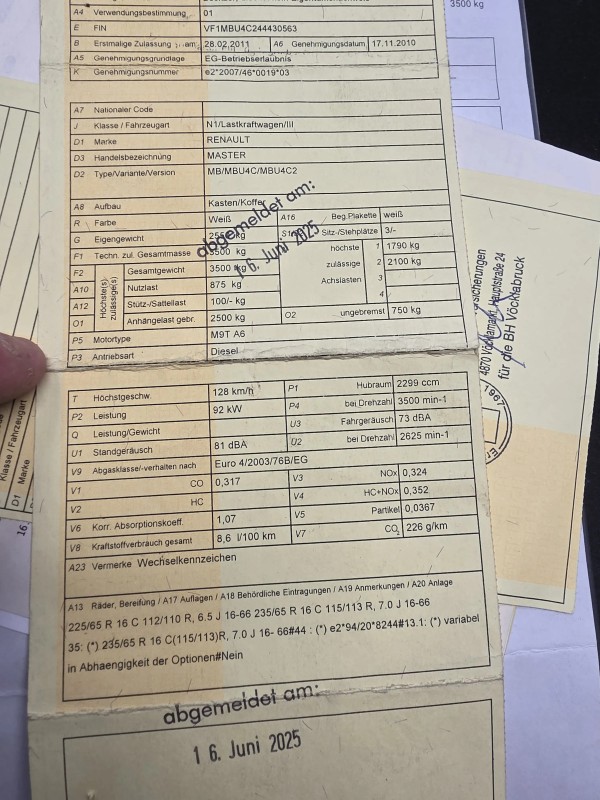 3500 kg
A4 Verwendungsbestimmung 01
E FIN VF1MBU4C244430563
B Erstmalige Zulassung am 28.02.2011 A6 Genehmigungsdatum 17.11.2010
A5 Genehmigungsgrundlage EG-Betriebserlaubnis
K Genehmigungsnummer e2*2007/46*0019*03
A7 Nationaler Code
J Klasse / Fahrzeugart N1/Lastkraftwagen/III
D1 Marke RENAULT
D3 Handelsbezeichnung MASTER
D2 Type/Variante/Version MB/MBU4C/MBU4C2
A8 Aufbau Kasten/Koffer
R Farbe Weiß A16 Beg.Plakette weiß
G Eigengewicht kg Sitz-/Stehplätze 3/-
F1 Techn. zul. Gesamtmasse 3500 kg höchste 1 1790 kg
F2 Höchste(s) zulässige(s) Gesamtgewicht 3500 kg zulässige 2 2100 kg
A10 Nutzlast 875 kg Achslasten 3
A12 Stütz-/Sattellast 100/- kg 4
O1 Anhängelast gebr. 2500 kg O2 ungebremst 750 kg
P5 Motortype M9T A6
P3 Antriebsart Diesel
abgemeldet am:
16. Juni 2025
T Höchstgeschw. 128 km/h P1 Hubraum 2299 ccm
P2 Leistung 92 kW P4 bei Drehzahl 3500 min-1
Q Leistung/Gewicht U3 Fahrgeräusch 73 dBA
U1 Standgeräusch 81 dBA U2 bei Drehzahl 2625 min-1
V9 Abgasklasse/-verhalten nach Euro 4/2003/76B/EG
V1 CO 0,317 V3 NOx 0,324
V2 HC V4 HC+NOx 0,352
V6 Korr. Absorptionskoeff. 1,07 V5 Partikel 0,0367
V8 Kraftstoffverbrauch gesamt 8,6 l/100 km V7 CO2 226 g/km
A23 Vermerke Wechselkennzeichen
A13 Räder, Bereifung / A17 Auflagen / A18 Behördliche Eintragungen / A19 Anmerkungen / A20 Anlage
225/65 R 16 C 112/110 R, 6.5 J 16-66 235/65 R 16 C 115/113 R, 7.0 J 16-66
35: (*) 235/65 R 16 C(115/113)R, 7.0 J 16- 66#44 : (*) e2*94/20*8244#13.1: (*) variabel
in Abhaengigkeit der Optionen#Nein
abgemeldet am:
16. Juni 2025
4870 Vöcklamarkt, Hauptstraße 24
für die BH Vöcklabruck
1967
Klasse / Fahrzeugart
D1 Marke
16